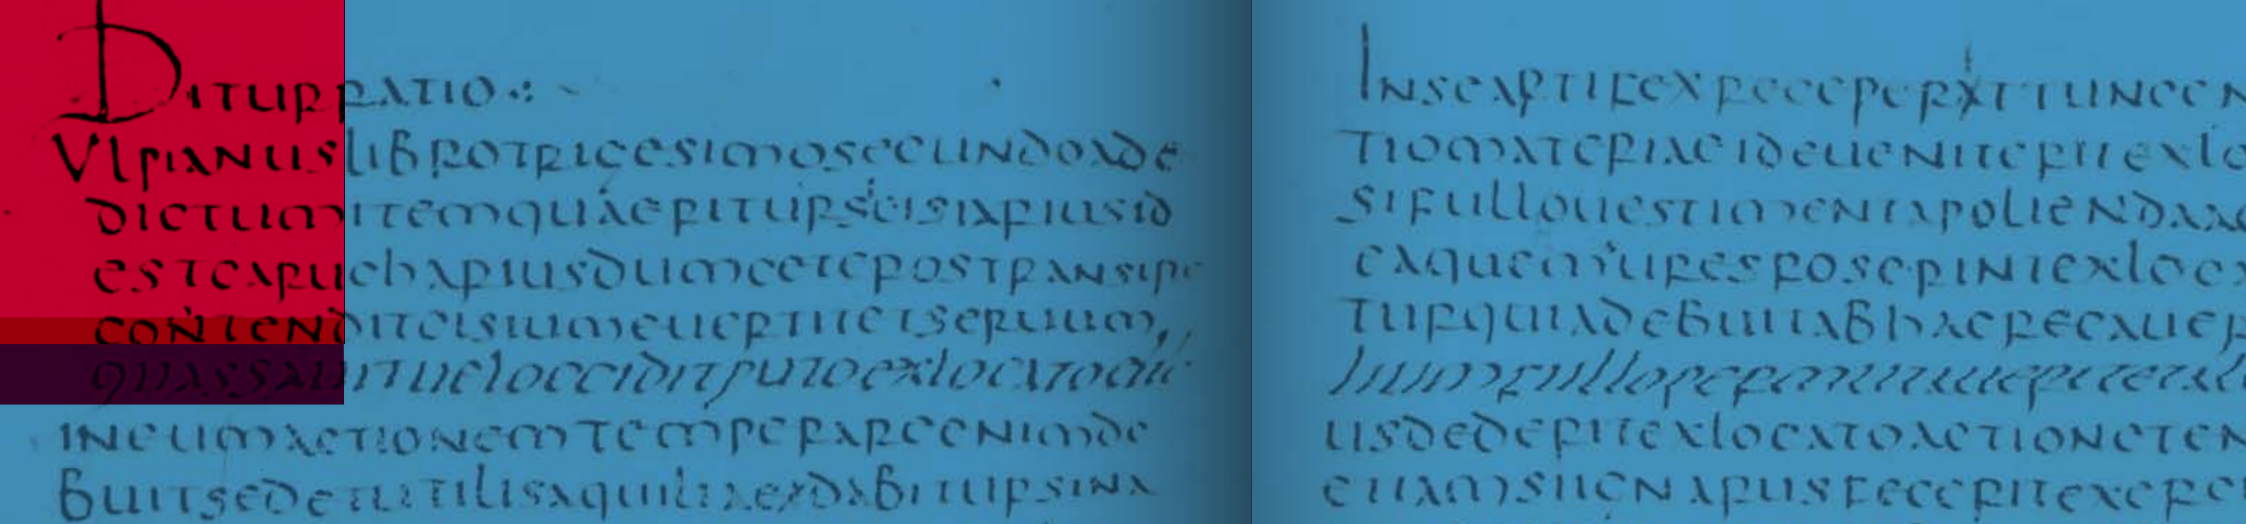 DITURRATIO
VLPIANUSLIBROTRICESIMOSECUNDOADE
DICTUMITEMQUAERITURSCISIARIUSID
ESTCARUCHARIUSDUMCETEROSTRANSIRE
CONTENDITCISIUMEUERTITETSERUUM
QUASSAUITUELOCCIDITPUTOEXLOCATO
INEUMACTIONEMTEMPERAREENIMDE
BUITSEDETUTILISAQUILIAEDABITURSINA
INSEARTIFEXRECEPERATTUNCEN
TIOMATERIAEIDEUENITERITEXLO
SIFULLOUESTIMENTAPOLIENDAAC
EAQUEMURESROSERINTEXLOCA
TURQUIADEBUITABHACRECAUER
LIUMFULLOPERMUTAUERITETAL
USDEDERITEXLOCATOACTIONETEN
ETIAMSIIGNARUSFECERITEXERC